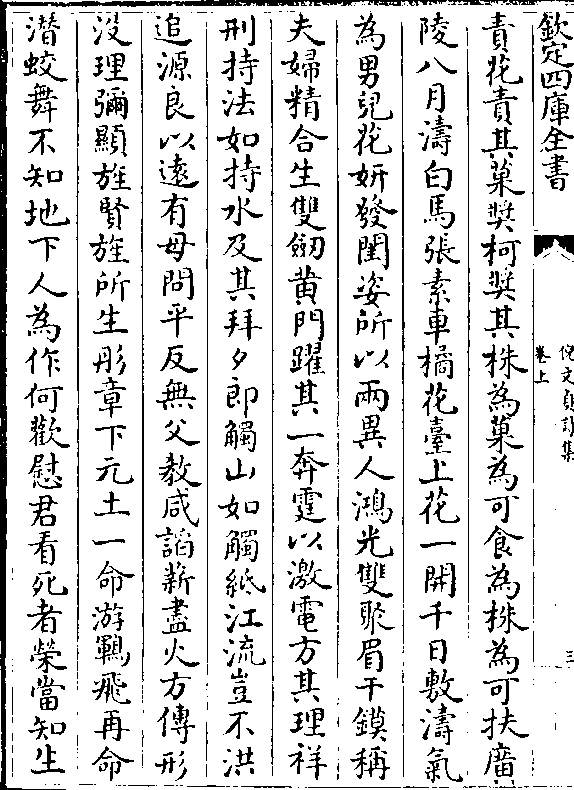 欽定四庫全書
倪文貞詩集
卷上
三
責花責其菓奨柯奨其株為菓為可食為株為可扶廣
陵八月濤白馬張素車橘花臺上花一開千日敷濤氣
為男兒花妍發閨姿所以兩異人鴻光雙聚眉干鏌稱
夫婦精合生雙劒黄門躍其一奔霆以激電方其理祥
刑持法如持水及其拜夕郎觸山如觸紙江流豈不洪
追源良以逺有母問平反無父教咸謟薪盡火方傳形
没理彌顯旌賢旌所生彤章下元土一命游鶤飛再命
潜蛟舞不知地下人為作何歡慰君看死者榮當知生